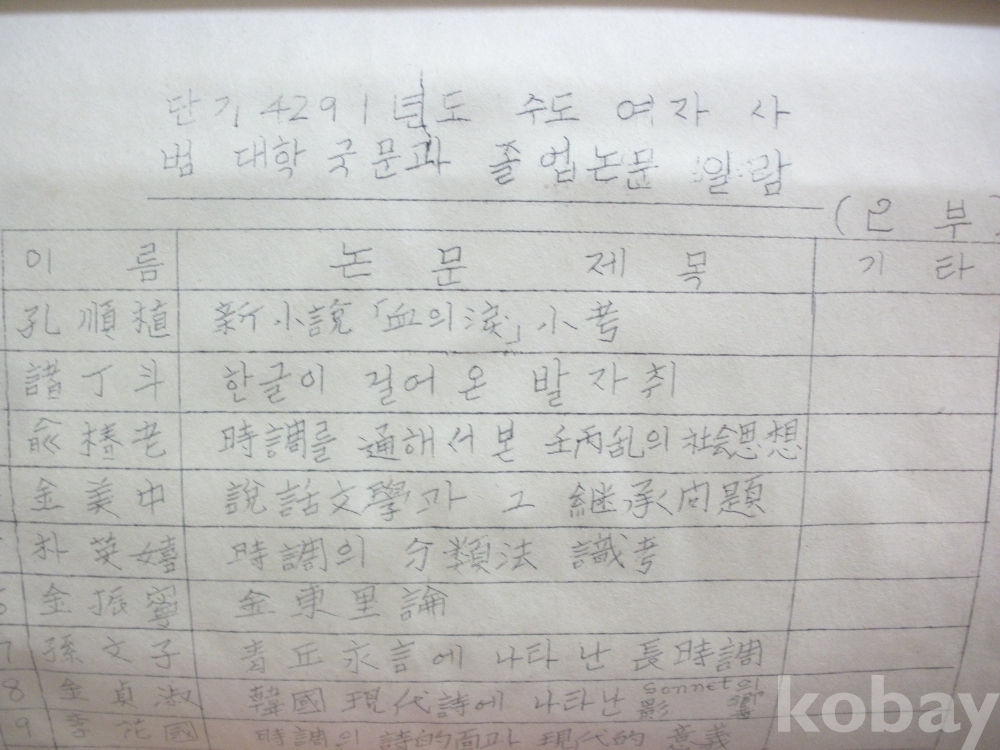 단기 4291년도 수도 여자 사
범 대학 국문과 졸업논문 일람
(2 부)
이 름 논 문 제 목 기 타
孔順植 新小說「血의淚」小考
諸丁斗 한글이 걸어 온 발 자 취
兪椿老 時調를 通해서 본 壬丙乱의 社会思想
金美中 說話文學과 그 継承問題
朴英嬉 時調의 分類法 識考
金振寧 金東里論
7 孫文子 青丘永言에 나타난 長時調
8 金貞淑 韓國現代詩에 나타난 影響
9 李花國 時調의 詩的面과 現代的 意義
kobay